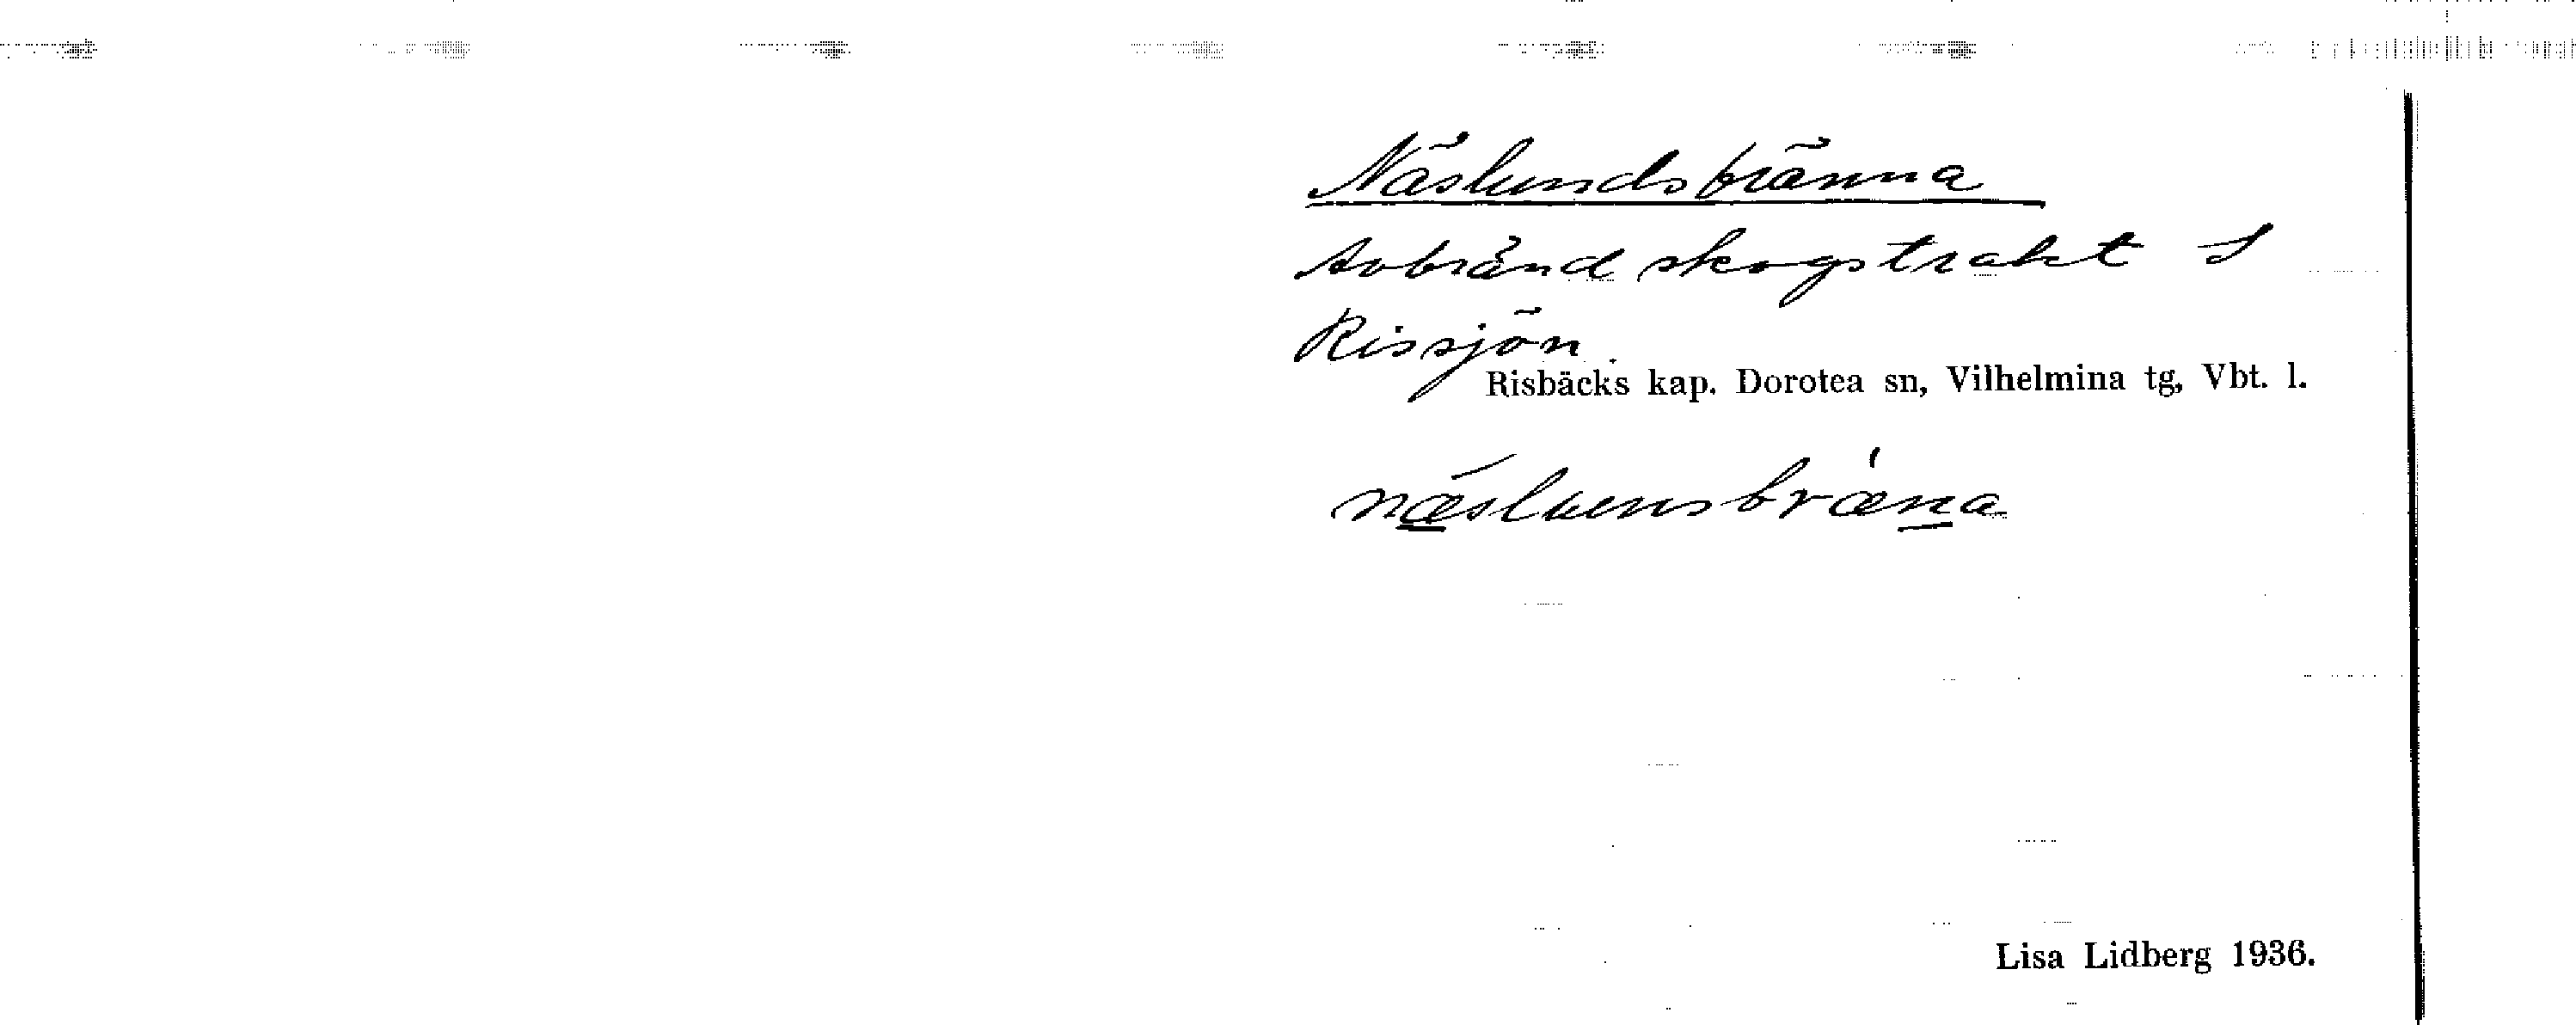 Näslundsbränna
Avbränd skogstrakt S
Rissjön.
Risbäcks kap. Dorotea sn, Vilhelmina tg, Vbt. l.
næslunsbræna
Lisa Lidberg 1936.